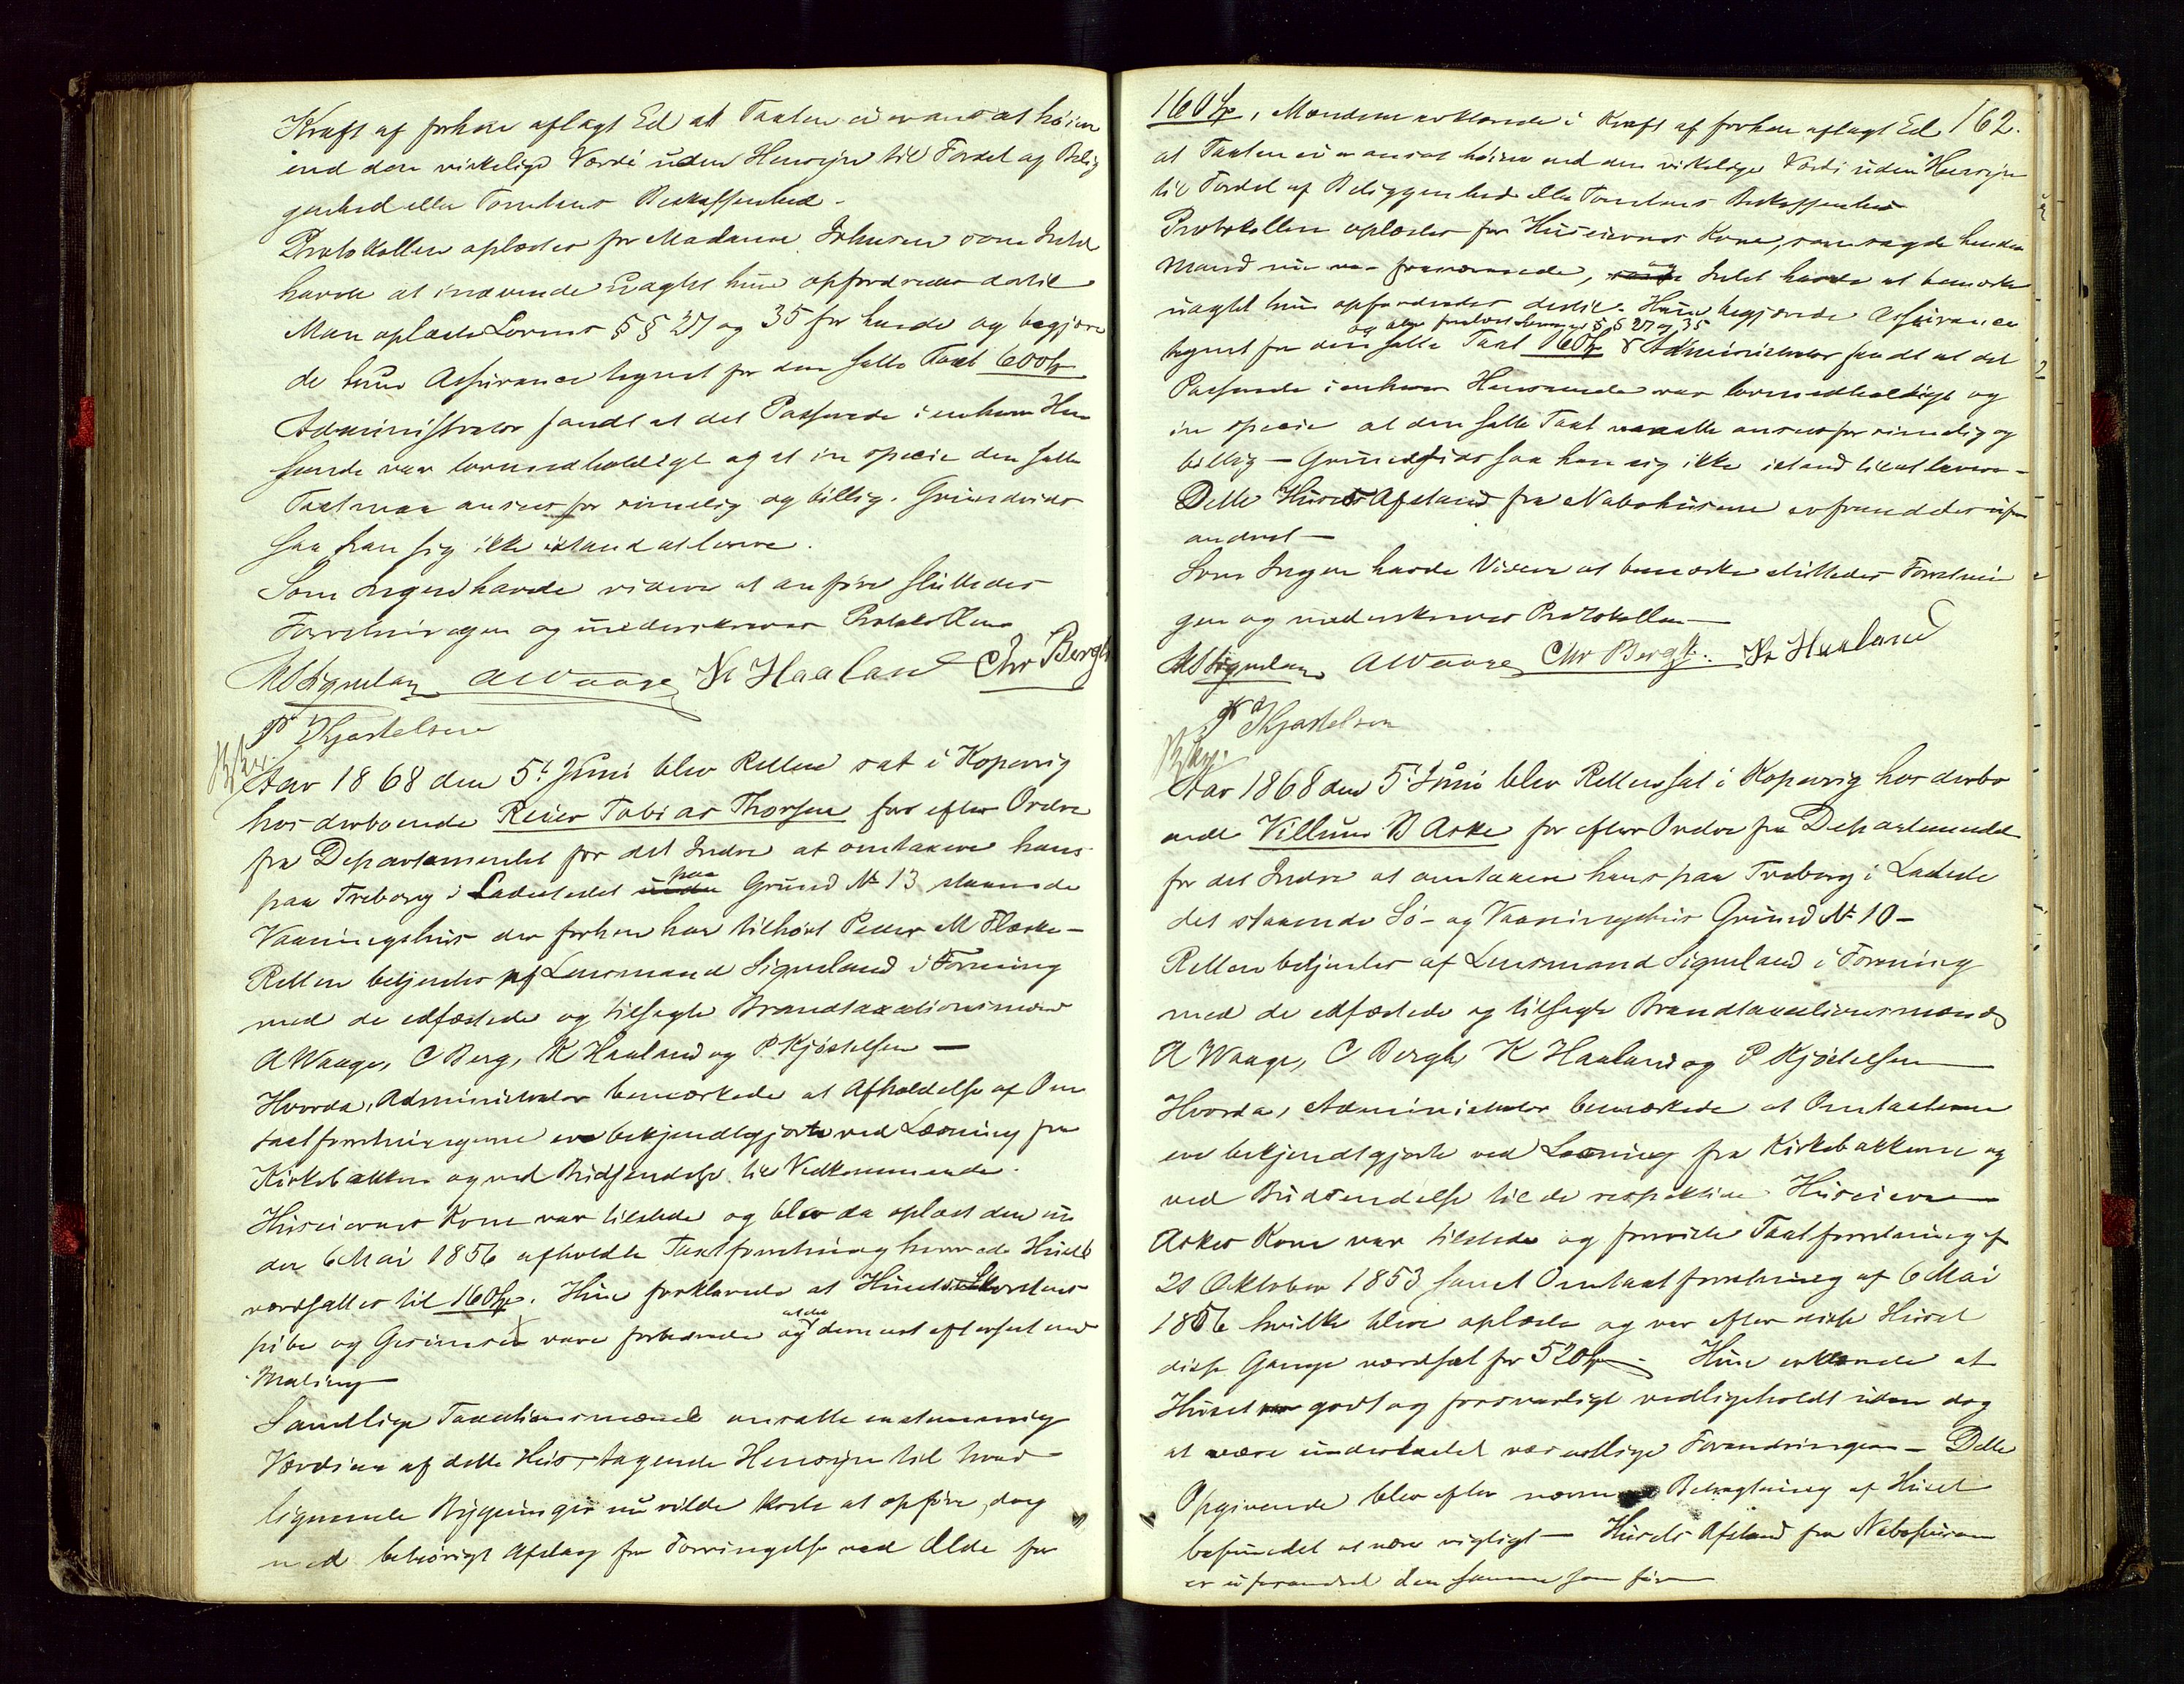 Kraft af forhen aflagt Ed at Taxten ei er ansat høiere
end den virkelige Værdi uden Hensyn til Fordel af Belig
genhed eller Tomtens Beskaffenhed.
Protokollen oplæstes for Madame Johnsen som Intet
havde at indvende uagtet hun opfordredes dertil
Man oplæste Lovens §§ 27 og 35 for hende og begjære
de hun Assurance tegnet for den satte Taxt 600 Sp
Administrator fandt at det Passerede i enhver Hen
seende var lovmedholdigt og at in specie den satte
Taxt maa ansees for rimelig og billig. Grundrids
saa han sig ikke istand at levere.
Som Ingen havde videre at anføre sluttedes
Forretningen og underskreves Protokollen
Signeland AWaage K Haaland Chr Bergh
P Kjøstelsen
Aar 1868 den 5te Juni blev Retten sat i Kopervig
hos derboende Reier Tobias Thorsen for efter Ordre
fra Departementet for det Indre at omtaxere hans
paa Treborg i Ladestedet under paa Grund No 13 staaende
Vaaningshus der forhen har tilhørt Peder M Flaske –
Retten betjentes af Lensmand Signeland i Forening
med de edfæstede og tilsagte Brandtaxationsmænd
A Waage, C Berg, K Haaland og P. Kjøstelsen —
Hvorda, Administrator bemærkede at Afholdelse af Om
taxtforretningerne ere bekjendtgjorte ved Læsning fra
Kirkebakken og ved Budsendelse til Vedkommende.
Huseierens Kone var tilstede og blev da oplæst den un
der 6 Mai 1856 afholdte Taxtforretning hvorved Huset
værdsattes til 160 Sp. Hun forklarede at Husets Skorstens
pibe og Gesimser vare forbedrede og at det dernest eftersset med
Maling
Samtlige Taxationsmænd ansatte enstemmig
Værdien af dette Hus, tagende Hensyn til hvad
lignende Bygninger nu vilde koste at opføre, dog
med behørigt Afslag for Forringelse ved Ælde for
162.
160 Sp, Mændene erklærede i Kraft af forhen aflagt Ed
at Taxten ei er ansat høiere end den virkelige Værdi uden Hensyn
til Fordel af Beliggenhed eller Tomtens Beskaffenhed
Protokollen oplæstes for Huseierens Kone, som sagde hendes
Mand nu var fraværende, og Intet havde at bemærke
uagtet hun opfordredes dertil. Hun begjærede Assurance
og blev forelæst Lovens §§ 27 og 35
tegnet for den satte Taxt 160 Sp Administrator fandt at det
Passerede i enhver Henseende var lovmedholdigt og
in specie at den satte Taxt maatte ansees for rimelig og
billig – Grundrids saa han sig ikke istand til at levere –
Dette Husets Afstand fra Nabohusene er fremdeles ufor
andret —
Som Ingen havde Videre at bemærke sluttedes Forretnin
gen og underskreves Protokollen —
Signeland AWaage Chr Bergh. K Haaland
P Kjøstelsen
Aar 1868 den 5 Juni blev Retten sat i Kopervig hos derbo
ende Villum B Aske for efter Ordre fra Departementet
for det Indre at omtaxere hans paa Treborg i Ladeste
det staaende Sø- og Vaaningshus Grund No 10 –
Retten betjentes af Lensmand Signeland i Forening
med de edfæstede og tilsagte Brandtaxationsmænd
A Waage, C Bergh K Haaland og P Kjøstelsen
Hvorda, Administrator bemærkede at Omtaxterne
ere bekjendtgjorte ved Læsning fra Kirkebakkerne og
ved Budsendelse til de respektive Huseiere
Askes Kone var tilstede og foreviste Taxtforretning af
21 Oktober 1853 samt Omtaxtforretning af 6 Mai
1856 hvilke bleve oplæste og var efter disse Huset
disse Gange værdsat for 520 Sp. Hun erklærede at
Huset godt og forsvarligt vedligeholdt uden dog
at være undertaget væsentlige Forandringer – Dette
Opgivende blev efter nærmere Betragtning af Huset
befundet at være rigtigt — Husets Afstand fra Nabohusene
er uforandret den samme som før